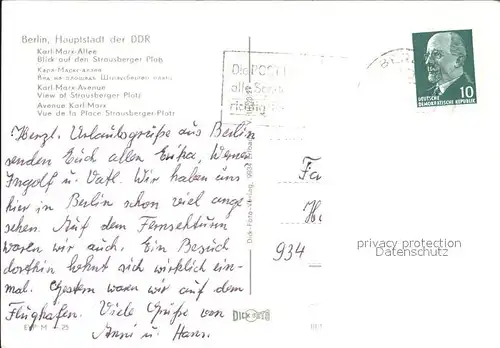 Berlin, Hauptstadt der DDR
Karl-Marx-Allee
Blick auf den Strausberger Platz
Карл-Маркс-аллея
Вид на площадь Штраусбергер платц
Karl-Marx-Avenue
View of Strausberger Platz
Avenue Karl-Marx
Vue de la Place Strausberger Platz
Die POST
alle
10
DEUTSCHE
DEMOKRATISCHE REPUBLIK
Herzl. Urlaubsgrüße aus Berlin
senden Euch allen Erika, Werner
Ingolf u. Vati. Wir haben uns
hier in Berlin schon viel ange
sehen. Auf dem Fernsehturm
waren wir auch. Ein Besuch
dorthin lohnt sich wirklich ein-
mal. Gestern waren wir auf dem
Flughafen. Viele Grüße von
Anni u. Hans.
Fa
934
privacy protection
Datenschutz
DICK FOTO